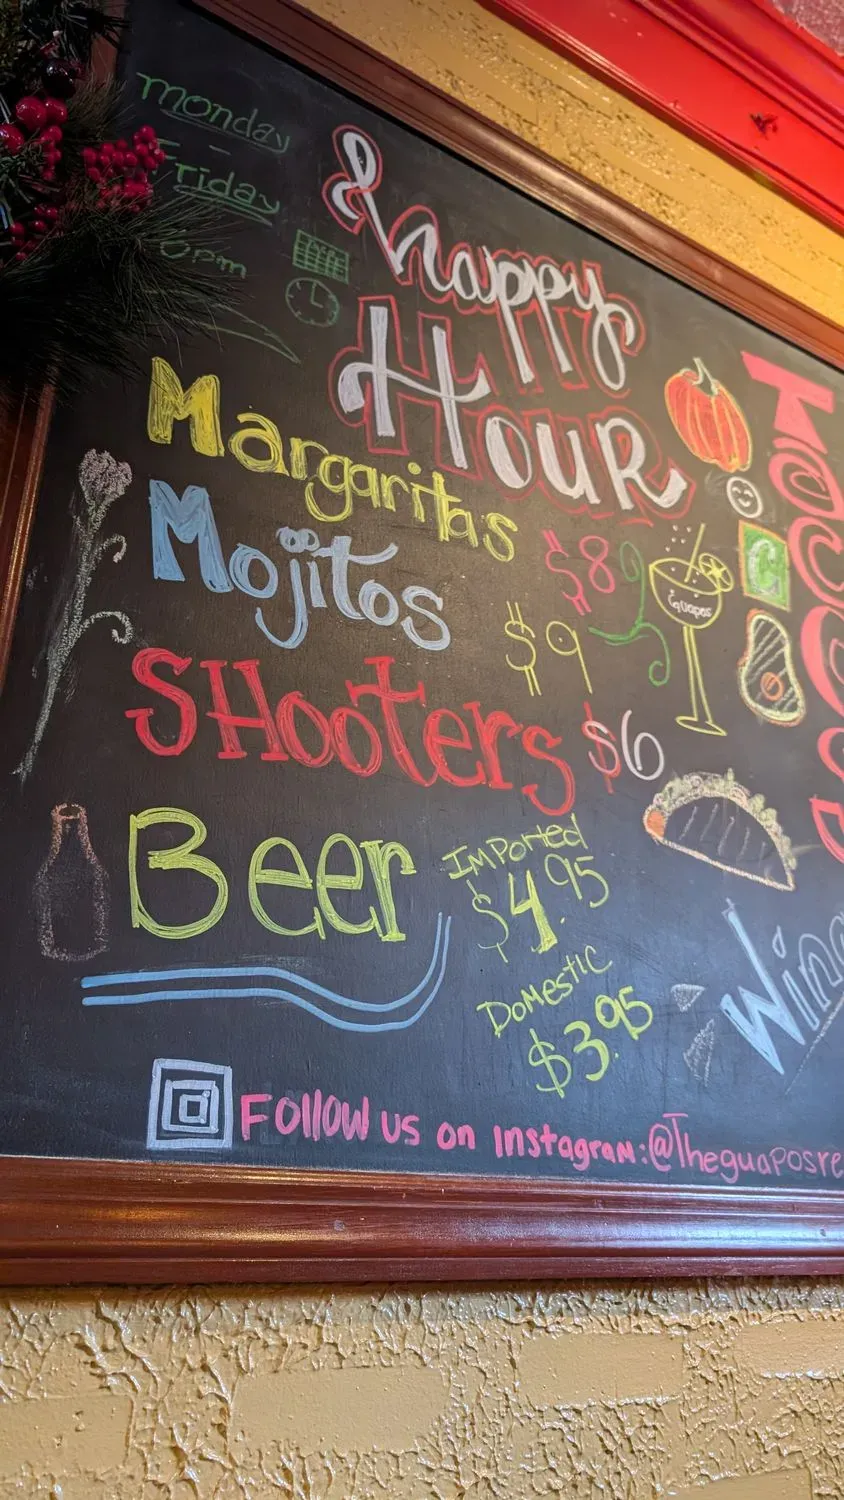 Monday
-
Friday
pm
Happy
Hour
Margaritas $8
Mojitos $9
SHooTers $6
Beer
Imported
$4.95
Domestic
$3.95
Guapos
C
Follow us on Instagram:@Theguaposre